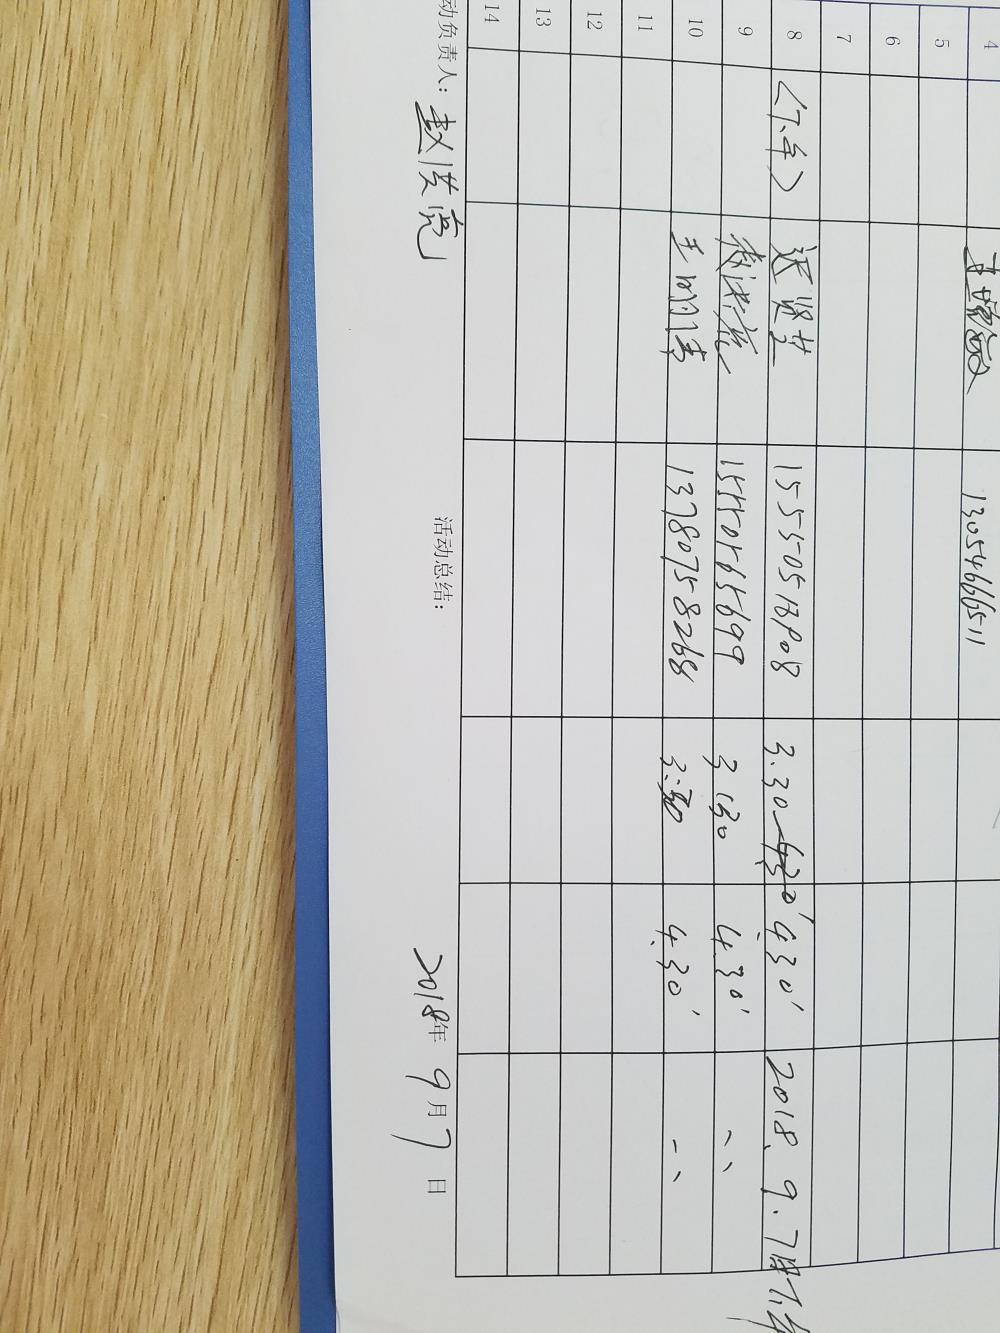 4 13054666511
5
6
7
8 〈下午〉 15550518908 3.30 4.30' 2018.9.7日下午
9 15550565699 3.30 4.30' 、、
10 王明清 13780758268 3:30 4.30' 、、
11
12
13
14
动负责人：赵洪亮 活动总结： 2018年9月7日